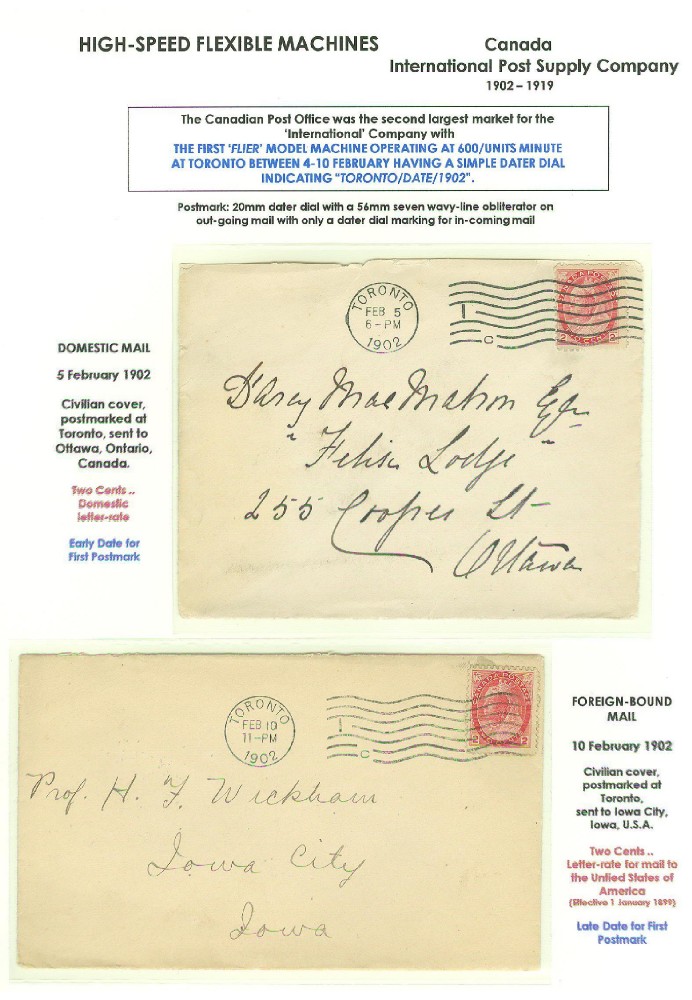 HIGH-SPEED FLEXIBLE MACHINES
Canada
International Post Supply Company
1902 – 1919
The Canadian Post Office was the second largest market for the
'International' Company with
THE FIRST 'FLIER' MODEL MACHINE OPERATING AT 600/UNITS MINUTE
AT TORONTO BETWEEN 4-10 FEBRUARY HAVING A SIMPLE DATER DIAL
INDICATING "TORONTO/DATE/1902".
Postmark: 20mm dater dial with a 56mm seven wavy-line obliterator on
out-going mail with only a dater dial marking for in-coming mail
TORONTO
FEB 5
6-PM
1902
I
C
CANADA POSTAGE
2 CENTS 2
DOMESTIC MAIL
5 February 1902
Civilian cover,
postmarked at
Toronto, sent to
Ottawa, Ontario,
Canada.
Two Cents ..
Domestic
letter-rate
Early Date for
First Postmark
D'Arcy MacMahon Esq
" Lodge "
255 Cooper St
Ottawa
TORONTO
FEB 10
11-PM
1902
I
C
CANADA POSTAGE
2 2
Prof. H. F. Wickham
Iowa City
Iowa
FOREIGN-BOUND
MAIL
10 February 1902
Civilian cover,
postmarked at
Toronto,
sent to Iowa City,
Iowa, U.S.A.
Two Cents ..
Letter-rate for mail to
the Untied States of
America
(Effective 1 January 1899)
Late Date for First
Postmark